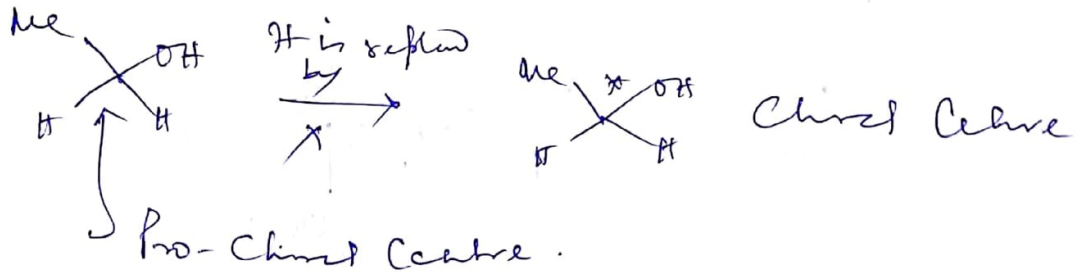 Me
OH
H is replaced
by
X
H
H
Me
*
OH
H
H
Chiral Centre
Pro-Chiral Centre.